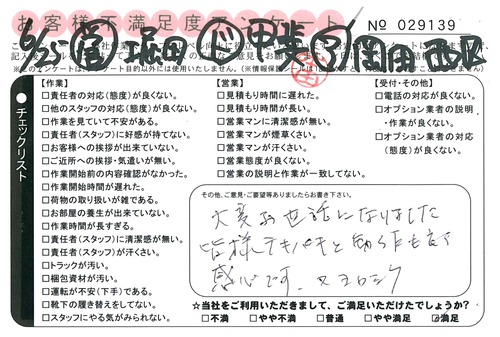 お客様不満足度アンケート
№ 029139
6/25 堀田 甲斐
チェックリスト
【作業】
□責任者の対応(態度)が良くない。
□他のスタッフの対応(態度)が良くない。
□作業を見ていて不安がある。
□責任者(スタッフ)に好感が持てない。
□お客様への挨拶が出来ていない。
□ご近所への挨拶・気遣いが無い。
□作業開始前の内容確認がなかった。
□作業開始時間が遅れた。
□荷物の取り扱いが雑である。
□お部屋の養生が出来ていない。
□作業時間が長すぎる。
□責任者(スタッフ)に清潔感が無い。
□責任者(スタッフ)が汗くさい。
□トラックが汚い。
□梱包資材が汚い。
□運転が不安(下手)である。
□靴下の履き替えをしてない。
□スタッフにやる気がみられない。
【営業】
□見積もり時間に遅れた。
□見積もり時間が長い。
□営業マンに清潔感が無い。
□営業マンが煙草くさい。
□営業マンが汗くさい。
□営業態度が良くない。
□営業の説明と作業が一致してない。
【受付・その他】
□電話の対応が良くない。
□オプション業者の説明・作業が良くない。
□オプション業者の対応(態度)が良くない。
その他、ご意見・ご要望等ありましたらお書き下さい。
大変お世話になりました
皆様テキパキと動作も良く
感心です。又ヨロシク
☆当社をご利用いただきまして、ご満足いただけたでしょうか?
□不満 □やや不満 □普通 □やや満足 ☑満足